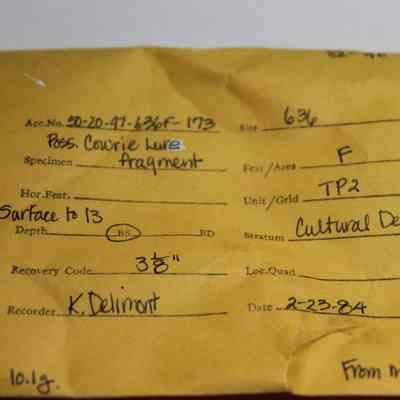 Acc.No. 50-20-97-636F-173 Site 636
Poss. Cowrie Lure
Specimen fragment Feat/Area F
Hor.Feat. Unit/Grid TP2
Surface to 13
Depth BS BD Stratum Cultural De
Recovery Code 3 1/8" Loc.Quad.
Recorder K. Delimont Date 2-23-84
10.1g. From m